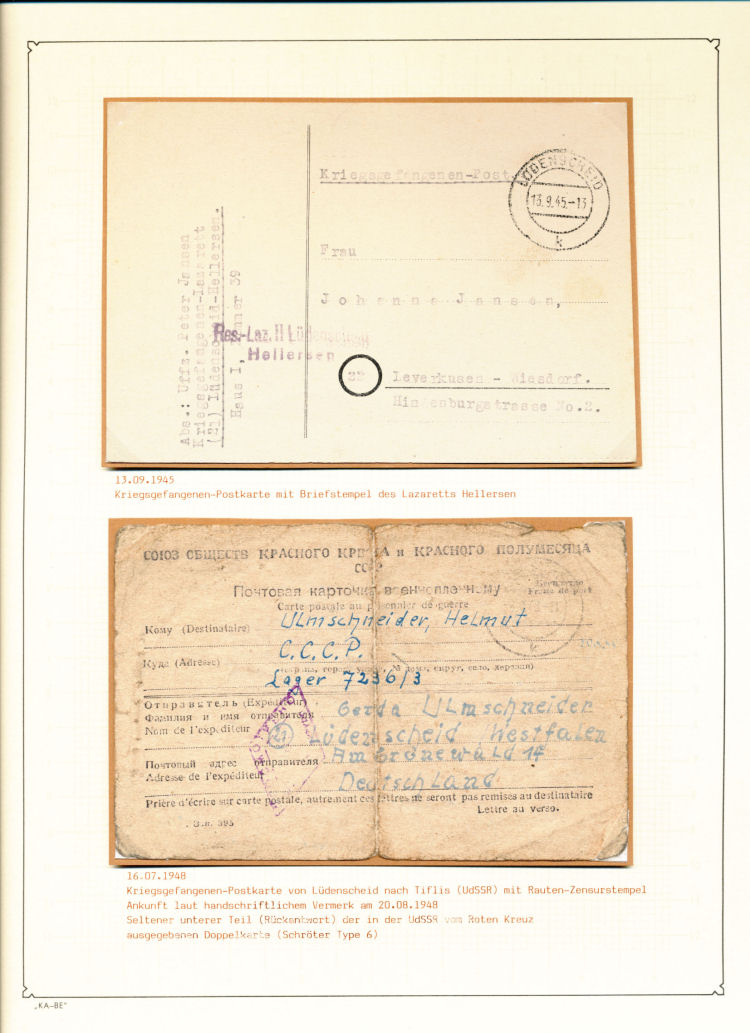 Kriegsgefangenen-Post
LÜDENSCHEID
13.9.45.-13
k
Frau
Johanna Jansen,
Leverkusen - Wiesdorf.
Hindenburgstrasse No.2.
22
Abs.: Uffz. Peter Jansen
Kriegsgefangenen-Lazarett
(21) Lüdenscheid-Hellersen.
Haus I, Zimmer 39
Res.-Laz. II Lüdenscheid
Hellersen
13.09.1945
Kriegsgefangenen-Postkarte mit Briefstempel des Lazaretts Hellersen
СОЮЗ ОБЩЕСТВ КРАСНОГО КРЕСТА и КРАСНОГО ПОЛУМЕСЯЦА
СССР
Почтовая карточка военнопленному
Carte postale au prisonnier de guerre
Бесплатно
Franc de port
Кому (Destinataire) Ulmschneider, Helmut
Куда (Adresse) C.C.C.P.
(страна, город, улица, № дома, округ, село, деревня)
Lager 7236/3
Отправитель (Expéditeur)
Фамилия и имя отправителя
Nom de l'expéditeur
Gerda Ulmschneider
21 Lüdenscheid Westfalen
Почтовый адрес отправителя
Adresse de l'expéditeur
Am Grünewald 14
Deutschland
Prière d'écrire sur carte postale, autrement ces lettres ne seront pas remises au destinataire
Lettre au verso.
16.07.1948
Kriegsgefangenen-Postkarte von Lüdenscheid nach Tiflis (UdSSR) mit Rauten-Zensurstempel
Ankunft laut handschriftlichem Vermerk am 20.08.1948
Seltener unterer Teil (Rückantwort) der in der UdSSR vom Roten Kreuz
ausgegebenen Doppelkarte (Schröter Type 6)
„KA-BE"